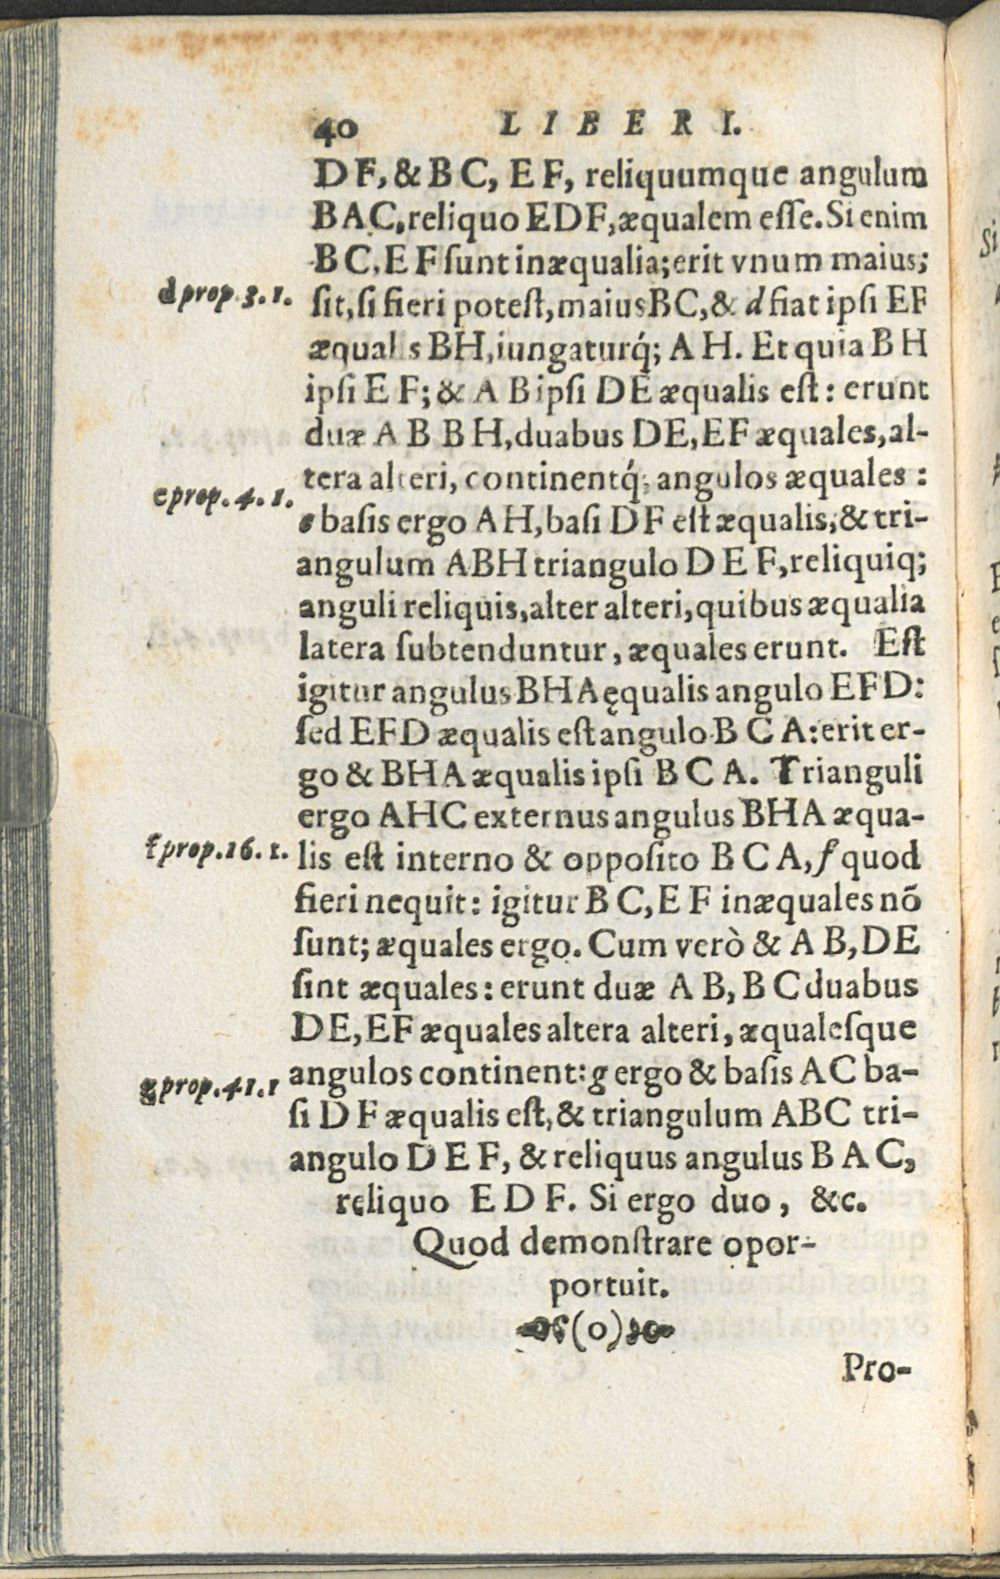 40 LIBER I.
DF, & BC, EF, reliquumque angulum
BAC, reliquo EDF, æqualem esse. Si enim
BC, EF sunt inæqualia; erit vnum maius;
d prop. 3. 1.
sit, si fieri potest, maius BC, & d fiat ipsi EF
æqualis BH, iungaturq́; AH. Et quia BH
ipsi EF; & AB ipsi DE æqualis est: erunt
duæ AB BH, duabus DE, EF æquales, al-
tera alteri, continentq́; angulos æquales:
e prop. 4. 1.
e basis ergo AH, basi DF est æqualis, & tri-
angulum ABH triangulo DEF, reliquiq;
anguli reliquis, alter alteri, quibus æqualia
latera subtenduntur, æquales erunt. Est
igitur angulus BHA ęqualis angulo EFD:
sed EFD æqualis est angulo BCA: erit er-
go & BHA æqualis ipsi BCA. Trianguli
ergo AHC externus angulus BHA æqua-
f prop. 16. 1.
lis est interno & opposito BCA, f quod
fieri nequit: igitur BC, EF inæquales nõ
sunt; æquales ergo. Cum verò & AB, DE
sint æquales: erunt duæ AB, BC duabus
DE, EF æquales altera alteri, æqualesque
g prop. 41. 1
angulos continent: g ergo & basis AC ba-
si DF æqualis est, & triangulum ABC tri-
angulo DEF, & reliquus angulus BAC,
reliquo EDF. Si ergo duo, &c.
Quod demonstrare opor-
portuit.
(0)
Pro-